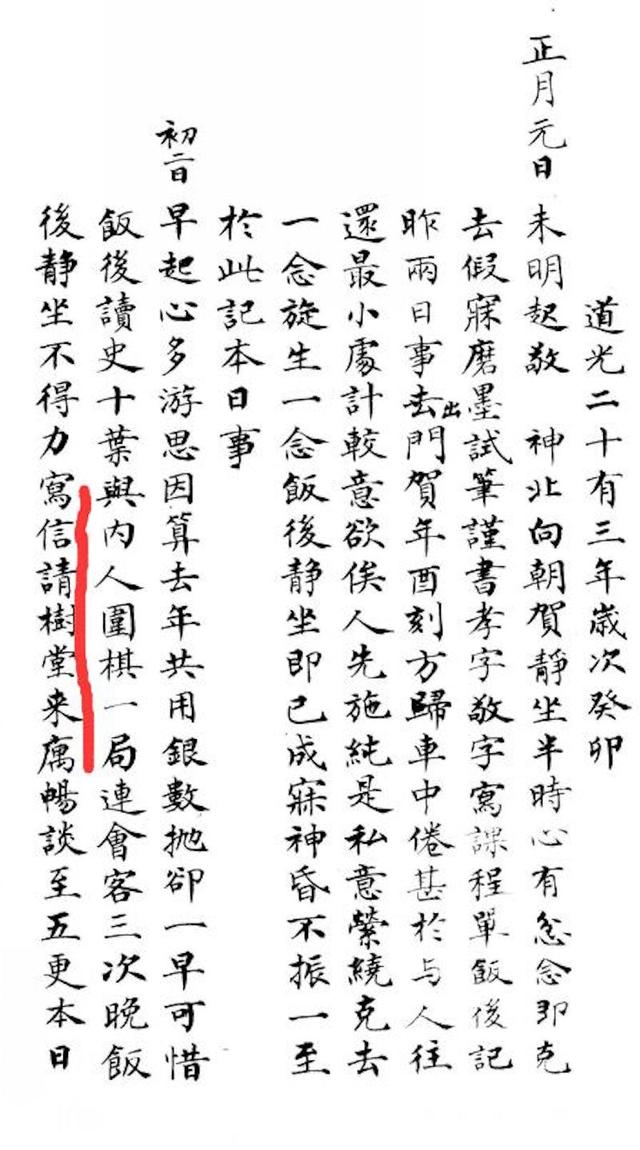 道光二十有三年歲次癸卯
正月元日 未明起敬 神北向朝賀靜坐半時心有忿念即克
去假寐磨墨試筆謹書孝字敬字寫課程單飯後記
昨兩日事去出門賀年酉刻方歸車中倦甚於与人往
還最小處計較意欲俟人先施純是私意縈繞克去
一念旋生一念飯後靜坐即已成寐神昏不振一至
於此記本日事
初二日 早起心多游思因算去年共用銀數拋卻一早可惜
飯後讀史十葉與內人圍棋一局連會客三次晚飯
後靜坐不得力寫信請樹堂来寓暢談至五更本日